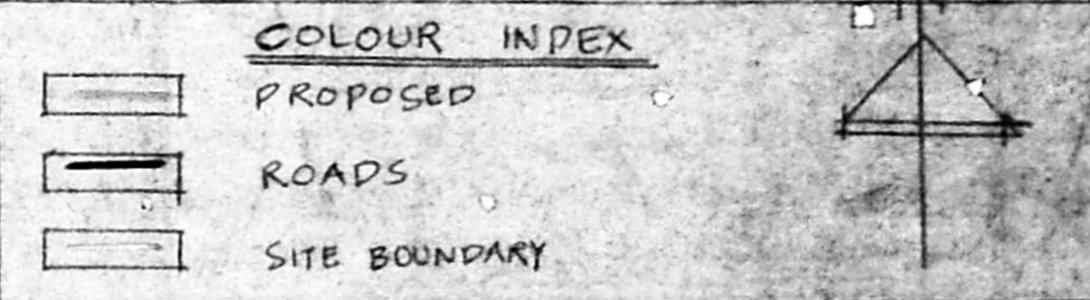 COLOUR INDEX
PROPOSED
ROADS
SITE BOUNDARY